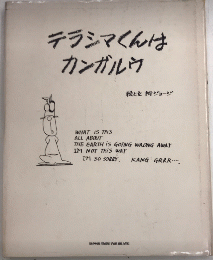 テラシマくんは
カンガルウ
WHAT IS THIS
ALL ABOUT
THE EARTH IS GOING WRONG AWAY
I'M NOT THIS WAY
I'M SO SORRY, KANG GRRR...